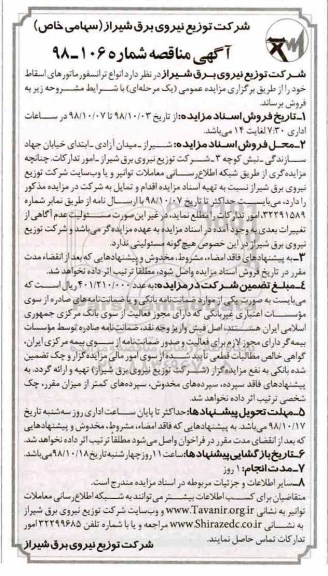 شرکت توزیع نیروی برق شیراز (سهامی خاص)
آگهی مناقصه شماره ۱۰۶-۹۸
شرکت توزیع نیروی برق شیراز در نظر دارد انواع ترانسفورماتورهای اسقاط
خود را از طریق برگزاری مزایده عمومی (یک مرحله‌ای) با شرایط مشروحه زیر به
فروش برساند.
۱-تاریخ فروش اسناد مزایده: از تاریخ ۹۸/۱۰/۰۳ تا ۹۸/۱۰/۰۷ در ساعات
اداری ۷:۳۰ لغایت ۱۴ می‌باشد.
۲-محل فروش اسناد مزایده: شیراز-میدان آزادی-ابتدای خیابان جهاد
سازندگی-نبش کوچه ۳-شرکت توزیع نیروی برق شیراز-امور تدارکات. چنانچه
مزایده‌گری از طریق شبکه اطلاع‌رسانی معاملات توانیر و یا وب‌سایت شرکت توزیع
نیروی برق شیراز نسبت به تهیه اسناد مزایده اقدام و تمایل به شرکت در مزایده مذکور
را دارد، می‌بایست حداکثر تا تاریخ ۹۸/۱۰/۰۷ با ارسال نامه از طریق نمابر شماره
۳۲۲۹۱۵۸۹ امور تدارکات را مطلع نماید، در غیر این صورت مسئولیت عدم آگاهی از
تغییرات بعدی به وجود آمده در اسناد مزایده به عهده مزایده‌گر می‌باشد و شرکت توزیع
نیروی برق شیراز در این خصوص هیچ‌گونه مسئولیتی ندارد.
۳-به پیشنهادهای فاقد امضاء، مشروط، مخدوش و پیشنهادهایی که بعد از انقضاء مدت
مقرر در تاریخ فروش اسناد مزایده واصل شود، مطلقاً ترتیب اثر داده نخواهد شد.
۴-مبلغ تضمین شرکت در مزایده: به عدد ۴۰۱/۲۱۰/۰۰۰ ریال است که
می‌بایست به صورت یکی از موارد ضمانت‌نامه بانکی یا ضمانت‌نامه‌های صادره از سوی
مؤسسات اعتباری غیربانکی که دارای مجوز فعالیت از سوی بانک مرکزی جمهوری
اسلامی ایران هستند، اصل فیش واریز وجه نقد، ضمانت‌نامه صادره توسط مؤسسات
بیمه‌گر دارای مجوز لازم برای فعالیت و صدور ضمانت‌نامه از سوی بیمه مرکزی ایران،
گواهی خالص مطالبات قطعی تأیید شده از سوی امور مالی مزایده‌گزار و چک تضمین
شده بانکی به نفع مزایده‌گزار (شرکت توزیع نیروی برق شیراز) تهیه و ارائه گردد. به
پیشنهادهای فاقد سپرده، سپرده‌های مخدوش، سپرده‌های کمتر از میزان مقرر، چک
شخصی ترتیب اثر داده نخواهد شد.
۵-مهلت تحویل پیشنهادها: حداکثر تا پایان ساعت اداری روز سه‌شنبه تاریخ
۹۸/۱۰/۱۷ می‌باشد. به پیشنهادهایی که فاقد امضاء، مشروط، مخدوش و پیشنهادهایی
که بعد از انقضای مدت مقرر در فراخوان واصل می‌شود مطلقاً ترتیب اثر داده نخواهد شد.
۶-تاریخ بازگشایی پیشنهادها: ساعت ۱۱ روز چهارشنبه تاریخ ۹۸/۱۰/۱۸ می‌باشد.
۷-مدت انجام: ۱ روز
۸-سایر اطلاعات و جزئیات مربوطه در اسناد مزایده مندرج است.
متقاضیان برای کسب اطلاعات بیشتر می‌توانند به شبکه اطلاع‌رسانی معاملات
توانیر به نشانی www.Tavanir.org.ir و وب‌سایت شرکت توزیع نیروی برق شیراز
به نشانی www.Shirazedc.co.ir مراجعه و یا با شماره تلفن ۳۲۲۹۹۶۸۵ امور
تدارکات تماس حاصل نمایند.
شرکت توزیع نیروی برق شیراز